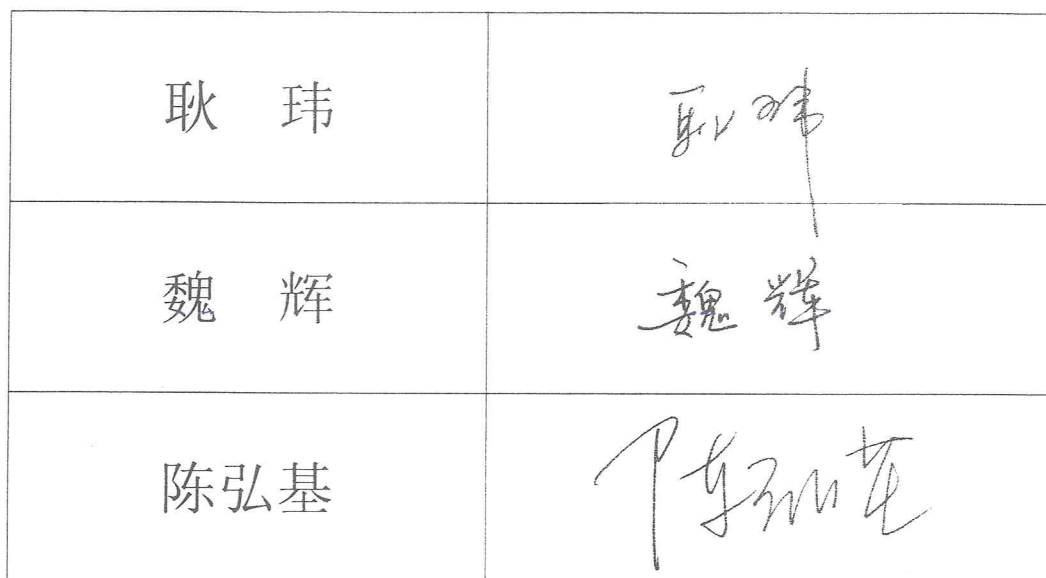 耿 玮 耿玮
魏 辉 魏辉
陈弘基 陈弘基